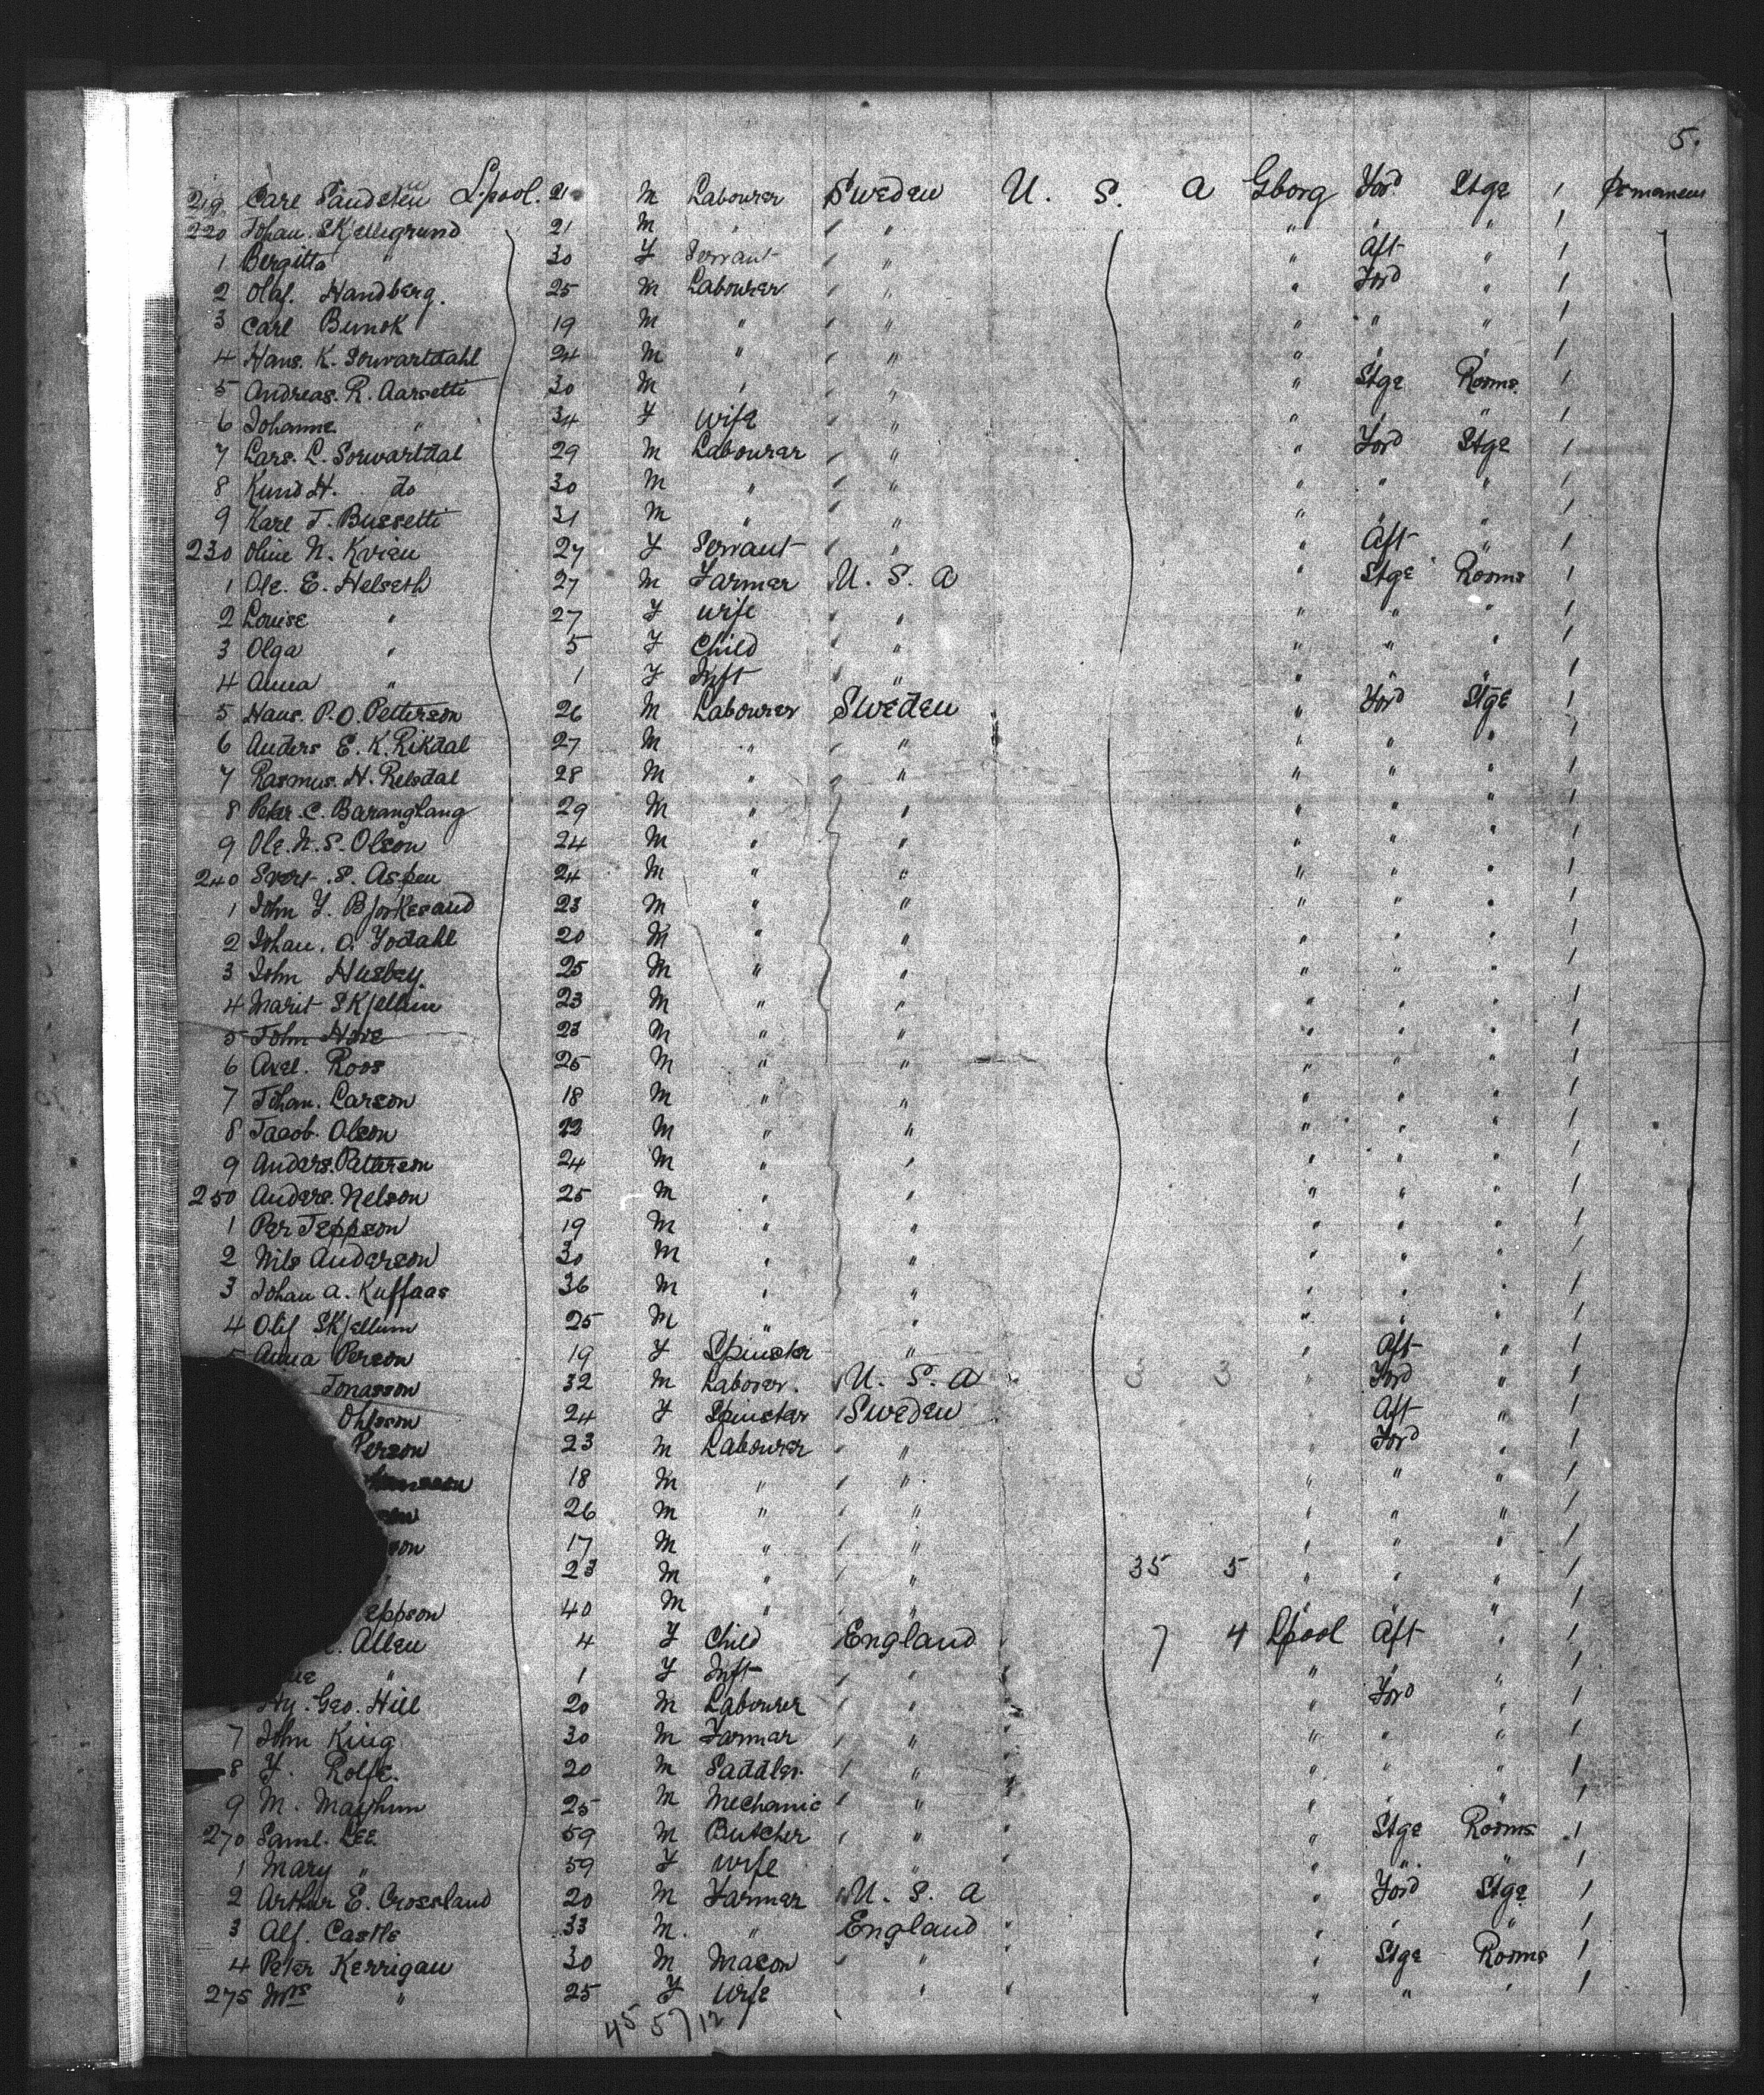 5.
219 Carl Sandsten L.pool. 21 M Labourer Sweden U. S. A Gborg Ford Stge 1 Permanent
220 Johan. Skjellegrund 21 M " " " " " " 1
1 Bergitta " 30 F Servant " " " Aft " 1
2 Olaf. Handberg. 25 M Labourer " " " Ford " 1
3 Carl Bunok 19 M " " " " " " 1
4 Hans. K. Sorwartdahl 24 M " " " " " " 1
5 Andreas. R. Aarsetti 30 M " " " Stge Rooms. 1
6 Johanne " 34 F Wife " " " " 1
7 Lars. L. Sorwartdal 29 M Labourer " " " Ford Stge 1
8 Kund H. do 30 M " " " " " " 1
9 Karl T. Bussetti 31 M " " " " " 1
230 Oline N. Kvien 27 F Servant " " " Aft " 1
1 Ole. E. Helseth 27 M Farmer U. S. A " Stge Rooms 1
2 Louise " 27 F Wife " " " " " 1
3 Olga " 5 F Child " " " " " 1
4 Anna " 1 F Inft " " " " " 1
5 Hans. P. O. Petterson 26 M Labourer Sweden " Ford Stge 1
6 Anders E. K. Rikdal 27 M " " " " " " 1
7 Rasmus. H. Relsdal 28 M " " " " " " 1
8 Peter. C. Baranglang 29 M " " " " " 1
9 Ole. N. S. Olson 24 M " " " " " 1
240 Svert. S. Aspen 24 M " " " " " 1
1 John F. Bjorkesand 23 M " " " " " 1
2 Johan. O. Fodahl 20 M " " " " " 1
3 John Husbey. 25 M " " " " " 1
4 Marit Skjellum 23 M " " " " " 1
5 John Hove 23 M " " " " " 1
6 Axel. Roos 25 M " " " " " 1
7 Johan. Larson 18 M " " " " " 1
8 Jacob. Olson 22 M " " " " " 1
9 Anders. Patterson 24 M " " " " " 1
250 Anders. Nelson 25 M " " " " " 1
1 Per Jeppson 19 M " " " " " 1
2 Nils Anderson 30 M " " " " " 1
3 Johan A. Kuffaas 36 M " " " " " 1
4 Olif Skjellum 25 M " " " " " 1
5 Anna Person 19 F Spinster " " Aft " 1
Jonasson 32 M Laborer. U. S. A 3 3 " Ford " 1
Ohlsson 24 F Spinster Sweden Aft " 1
Person 23 M Labourer " " " Ford " 1
18 M " " " " " " 1
26 M " " " " " 1
son 17 M " " " " " " 1
23 M " " " 35 5 " " " 1
eppson 40 M " " " " " " 1
. Allen 4 F Child England 7 4 Lpool Aft " 1
" 1 F Inft " " " " " 1
Hy. Geo. Hill 20 M Labourer " " " Ford " 1
7 John King 30 M Farmer " " " " " 1
8 F. Rolfe. 20 M Saddler. " " " " " 1
9 M. Mayhun 25 M Mechanic " " " " " 1
270 Saml. Lee 59 M Butcher " " " Stge Rooms 1
1 Mary " 59 F Wife " " " " 1
2 Arthur E. Crossland 20 M Farmer U. S. A " Ford Stge 1
3 Alf. Castle 33 M. " England " " " " 1
4 Peter Kerrigan 30 M Mason " " " Stge Rooms 1
275 Mrs " 25 F Wife " " " " " 1
45 57/12